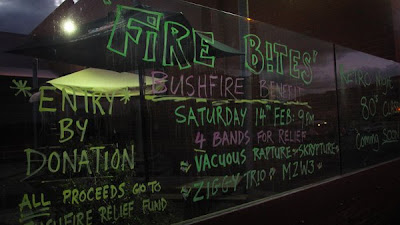 'FiRE BiTES'
BUSHFIRE BENEFIT
SATURDAY 14TH FEB: 9PM
4 BANDS FOR RELIEF
VACUOUS RAPTURE SKRYPTURE
ZIGGY TRIO M2W3
*ENTRY*
BY
DONATION
ALL PROCEEDS GO TO
BUSHFIRE RELIEF FUND
RETRO
80'
Coming Soon